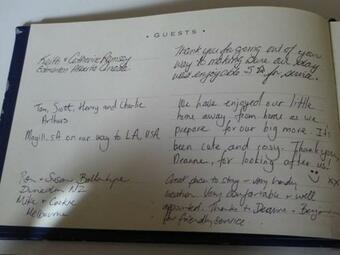 GUESTS
Keith & Catherine Ramsay
Edmonton Alberta Canada
Thank you for going out of your
way to making sure our stay
was enjoyable 5 ☆ for service.
Tam, Scott, Henry and Charlie
Arthurs
Magill, SA on our way to LA, USA
We have enjoyed our little
home away from home as we
prepare for our big move. It's
been cute and cosy. Thank you
Deanne, for looking after us!
xx
Ron & Susan Ballantyne
Dunedin NZ
Mike &
Melbourne
Great place to stay - very handy
location. Very comfortable & well
appointed. Thanks to Deanne &
for friendly service